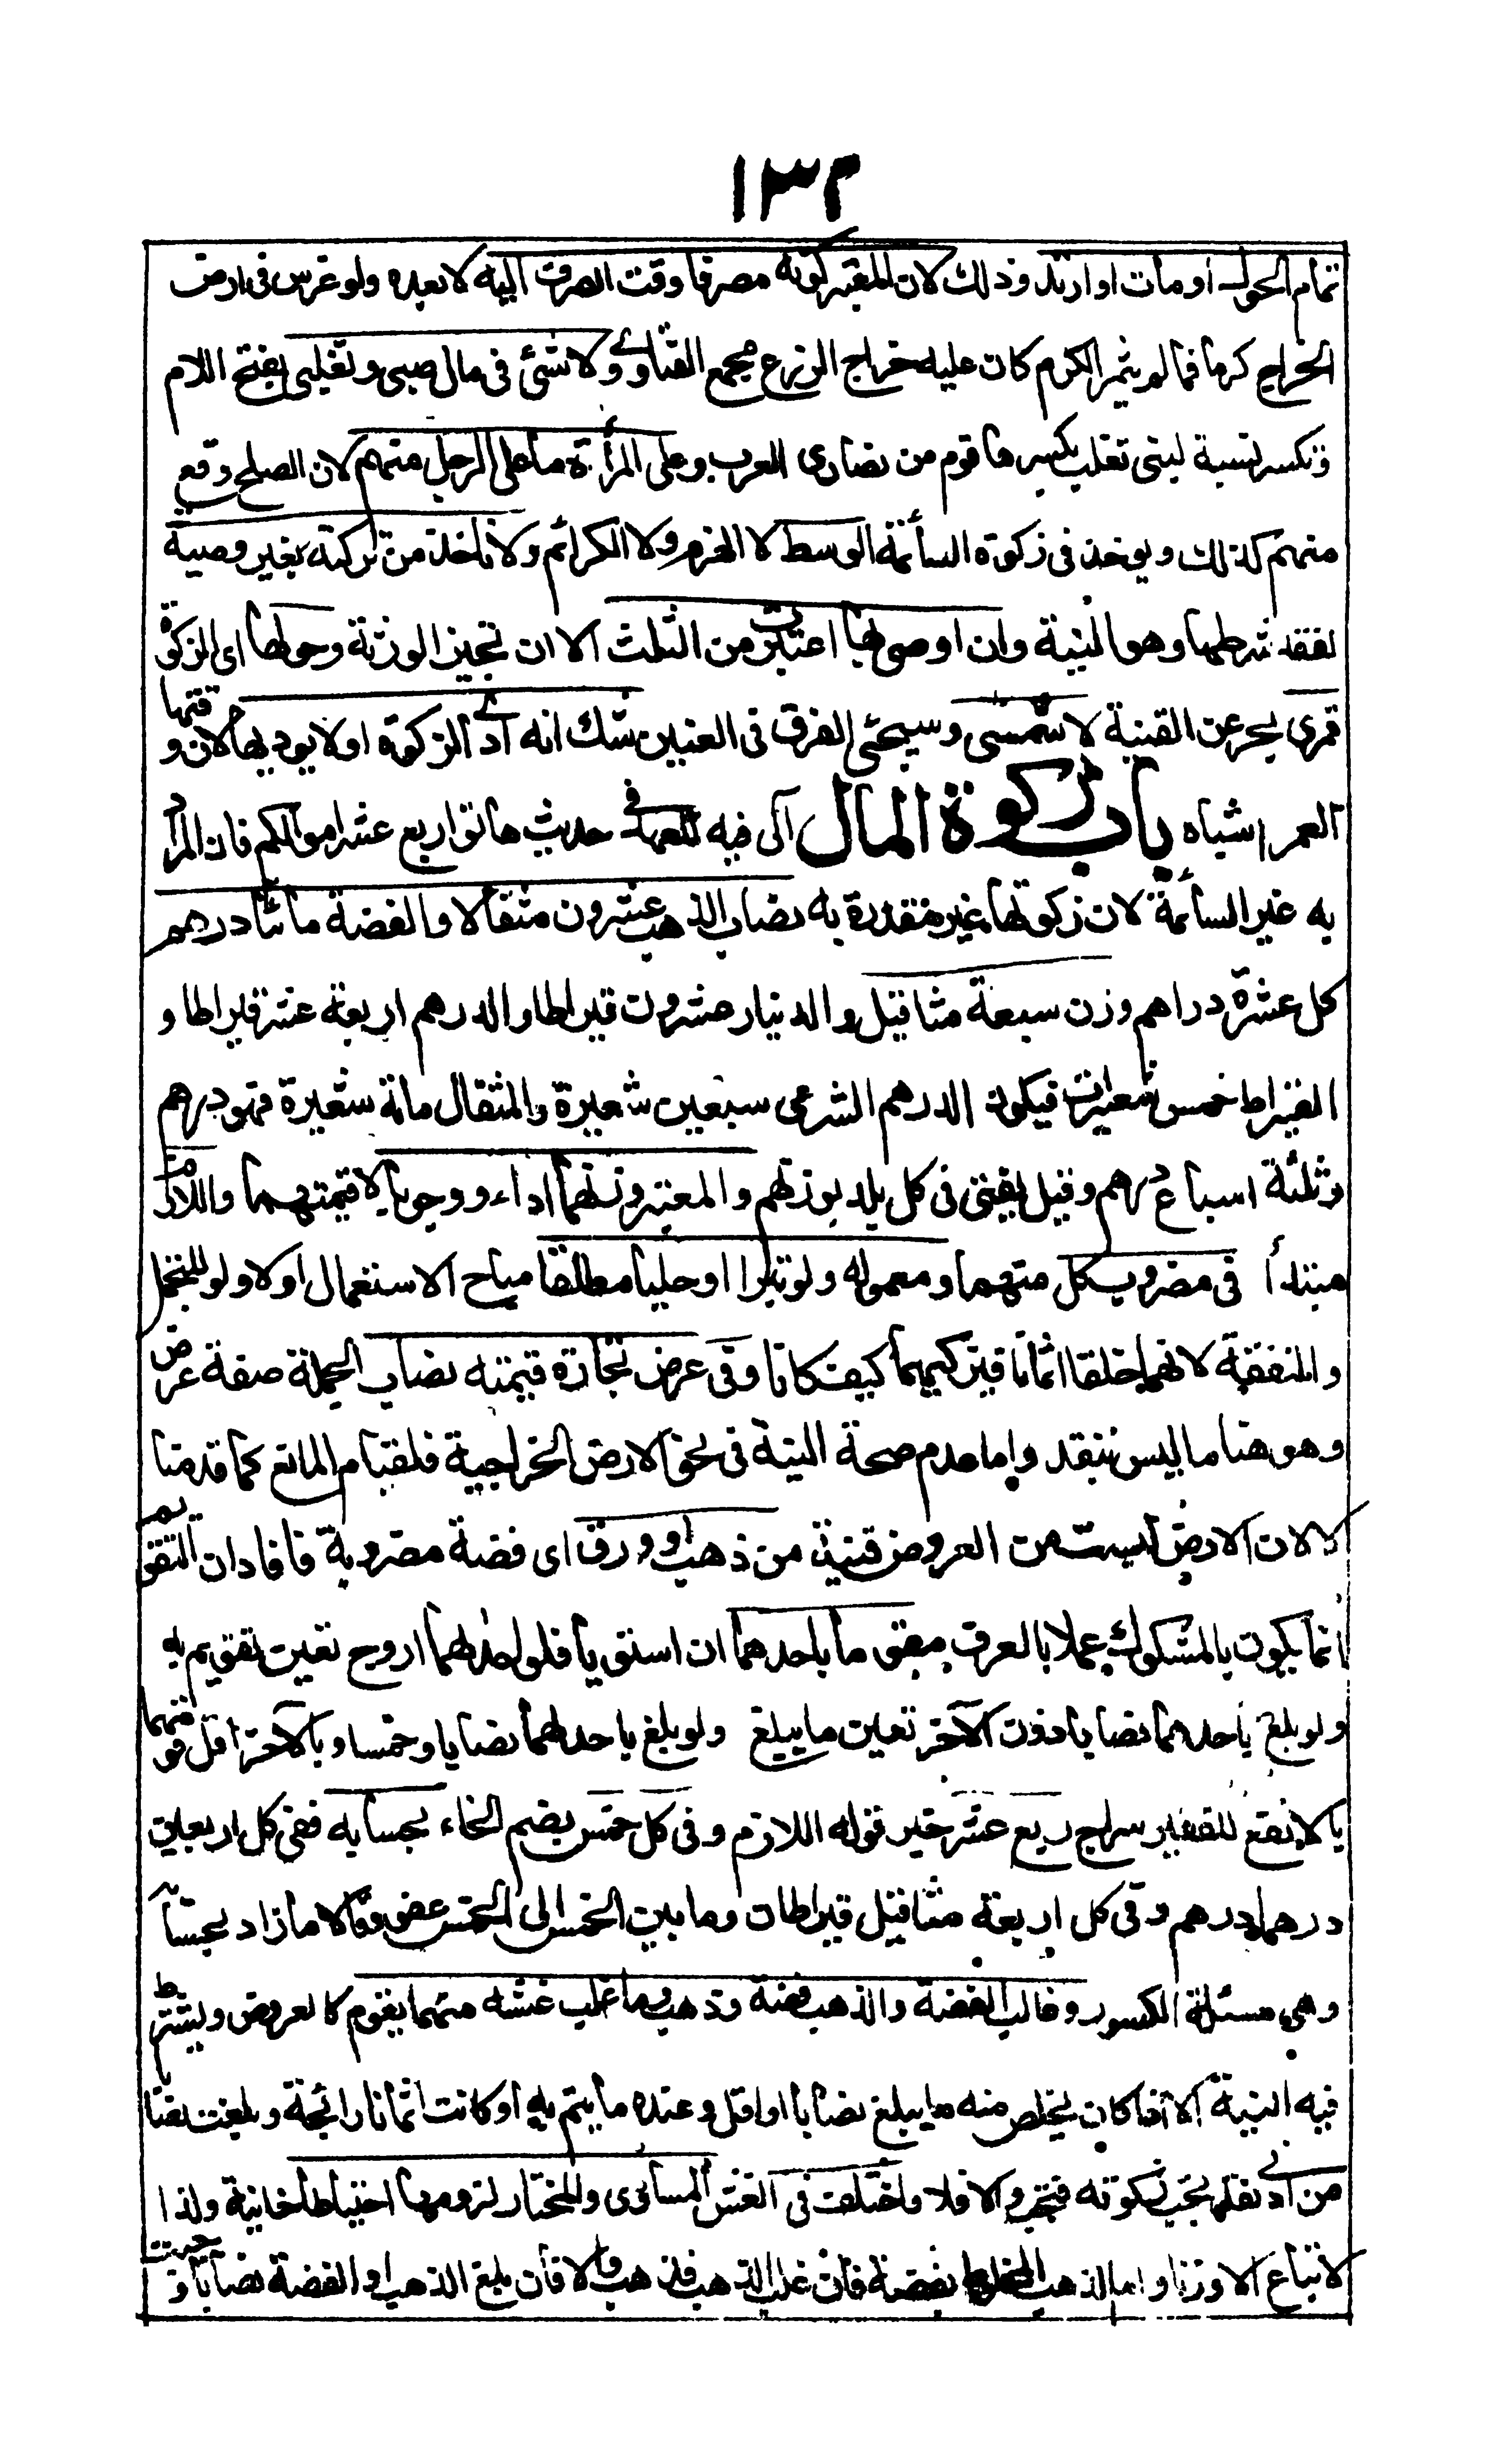 ١٣٢
تمام الحول او مات او ارتد وذلك لان المعتبر كونه مصرفا وقت الصرف اليه لا بعده ولو غرس فى ارض
الخراج كرما فما لم يثمر الكرم كان عليه خراج الزرع مجمع الفتاوى ولا شئ فى مال صبى وتغلبى بفتح اللام
وتكسر نسبة لبنى تغلب بكسرها قوم من نصارى العرب وعلى المرأة ما على الرجل منهم لان الصلح وقع
منهم كذلك ويوخذ فى زكوة السائمة الوسط لا الهرم ولا الكرائم ولا تاخذ من تركته بغير وصية
لفقد شرطها وهو النية وان اوصى بها اعتبرت من الثلث الا ان تجيز الورثة وحولها اى الزكوة
قمرى بحر عن القنية لا شمسى وسيجئ الفرق فى العنين شك انه ادى الزكوة او لا يوديها لان وقتها
العمر اشباه باب زكوة المال الى فيه للعهد فى حديث هاتوا ربع عشر اموالكم فان المراد
به غير السائمة لان زكوتها غير مقدرة به نصاب الذهب عشرون مثقالا والفضة مائتا درهم
كل عشرة دراهم وزن سبعة مثاقيل والدينار عشرون قيراطا والدرهم اربعة عشر قيراطا و
القيراط خمس شعيرات فيكون الدرهم الشرعى سبعين شعيرة والمثقال مائة شعيرة فهو درهم
وثلثة اسباع درهم وقيل يفتى فى كل بلد بوزنهم والمعتبر وزنهما اداء ووجوبا لا قيمتهما واللازم
مبتدأ فى مضروب كل منهما ومعموله ولو تبرا او حليا مطلقا مباح الاستعمال او لا ولو للتجمل
والنفقة لانهما خلقا اثمانا فيزكيهما كيف كانا وفى عرض تجارة قيمته نصاب الجملة صفة عرض
وهو هنا ما ليس بنقد واما عدم صحة النية فى نحو الارض الخراجية فلقيام المانع كما قدمنا
لا لان الارض ليست من العروض فتنبه من ذهب او ورق اى فضة مضروبة فافاد ان التقويم
انما يكون بالمسكوك عملا بالعرف مقوما باحدهما ان استويا فلو احدهما اروج تعين التقويم به
ولو بلغ باحدهما نصابا دون الآخر تعين ما يبلغ ولو بلغ باحدهما نصابا وخمسا وبالآخر اقل قومه
بالانفع للفقير سراج ربع عشر خبر قوله اللازم وفى كل خمس بضم الخاء بحسابه ففى كل اربعين
درهما درهم وفى كل اربعة مثاقيل قيراطان وما بين الخمس الى الخمس عفو وقالا ما زاد بحسابه
وهى مسئلة الكسور وغالب الفضة والذهب فضة وذهب وما غلب غشه منهما يقوم كالعروض ويشترط
فيه النية الا اذا كان يخلص منه ما يبلغ نصابا او اقل وعنده ما يتم به او كانت اثمانا رائجة وبلغت نصابا
من ادنى نقد تجب زكوته فتجب والا فلا واختلف فى الغش المساوى والمختار لزومها احتياطا خانية ولذا
لا تباع الا وزنا واما الذهب المخلوط بفضة فان غلب الذهب فذهب والا فان بلغ الذهب او الفضة نصابه وجبت